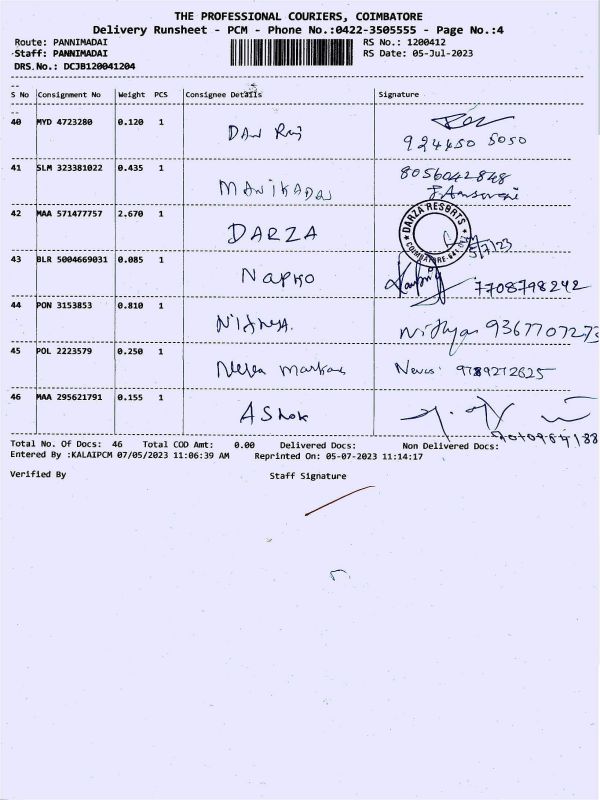 THE PROFESSIONAL COURIERS, COIMBATORE
Delivery Runsheet - PCM - Phone No.:0422-3505555 - Page No.:4
Route: PANNIMADAI RS No.: 1200412
Staff: PANNIMADAI RS Date: 05-Jul-2023
DRS.No.: DCJB120041204
S No Consignment No Weight PCS Consignee Details Signature
40 MYD 4723280 0.120 1 DAN Raj
924450 5050
41 SLM 323381022 0.435 1 MANIKADAN 8056042848
42 MAA 571477757 2.670 1 DARZA DARZA RESORTS 5/7/23
43 BLR 5004669031 0.085 1 NAPHO 7708798242
44 PON 3153853 0.810 1 Nithya. Nithya 9367707273
45 POL 2223579 0.250 1 9789272625
46 MAA 295621791 0.155 1 AShok
Total No. Of Docs: 46 Total COD Amt: 0.00 Delivered Docs: Non Delivered Docs:
Entered By :KALAIPCM 07/05/2023 11:06:39 AM Reprinted On: 05-07-2023 11:14:17
Verified By Staff Signature